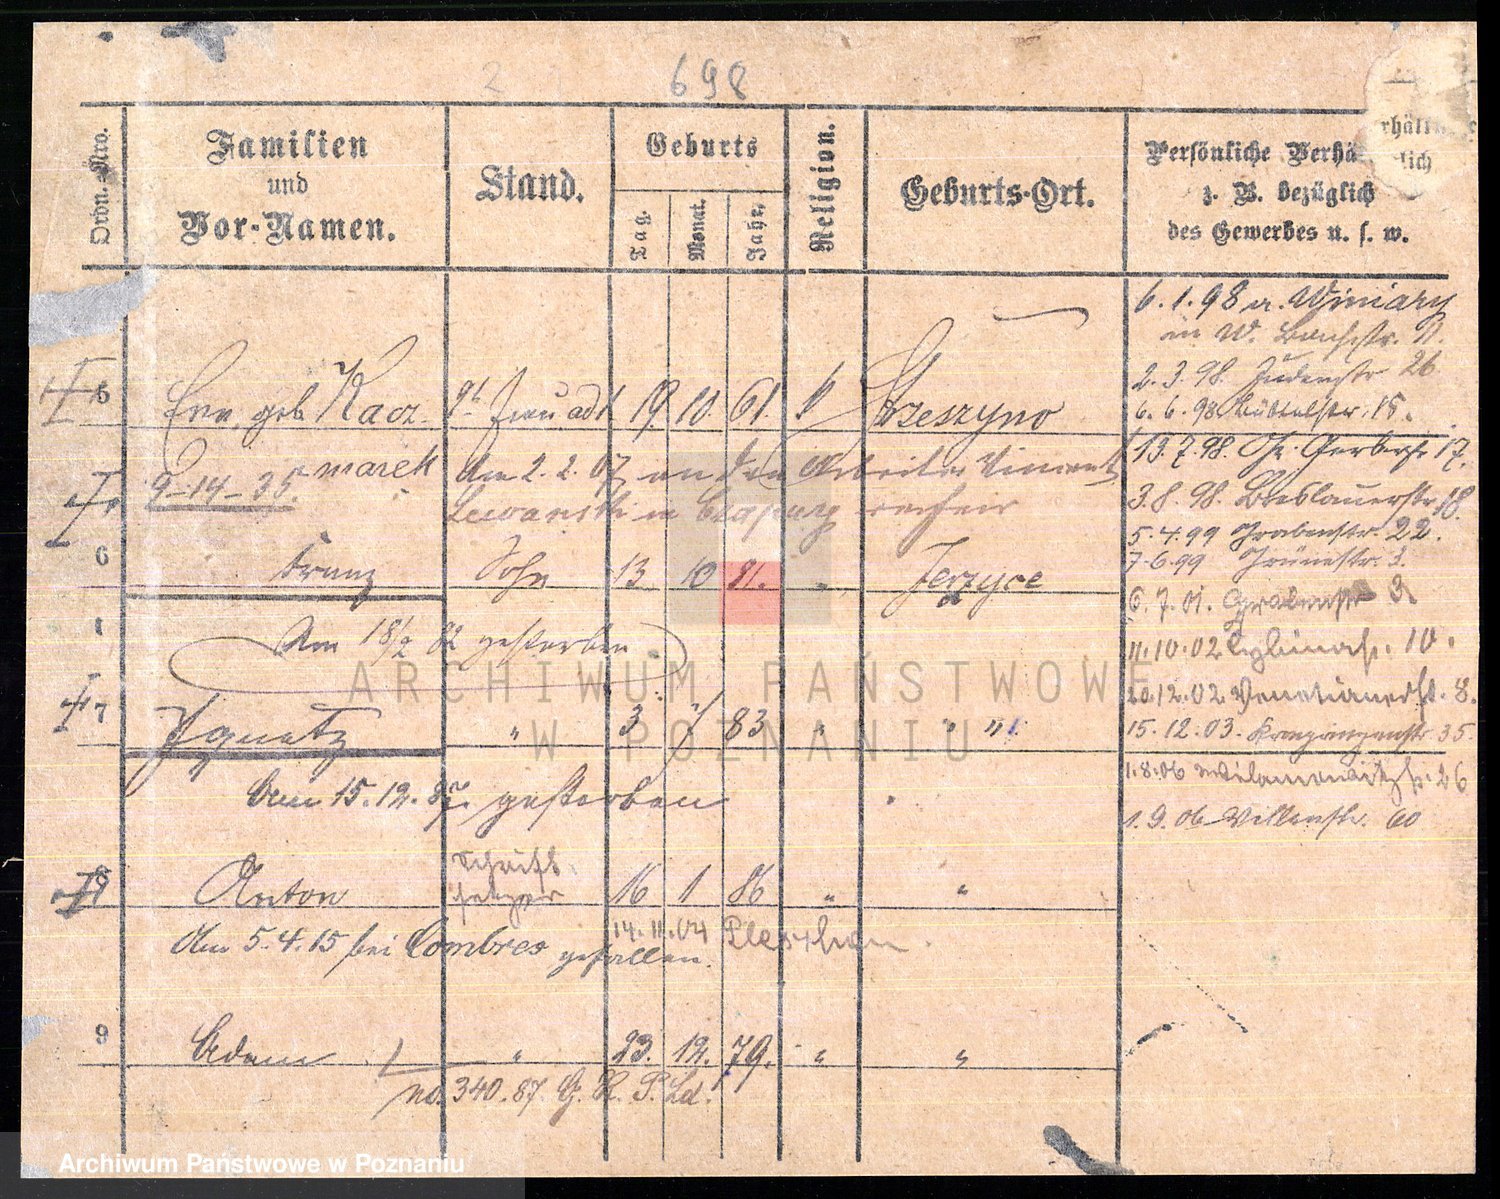 2
698
Ordn. Nro.
Familien
und
Vor-Namen.
Stand.
Geburts
Tag.
Monat.
Jahr.
Religion.
Geburts-Ort.
Persönliche Verhä
z. B. bezüglich
des Gewerbes u. s. w.
rhält
lich
6.1.98 a. Winiary
in W. Bachstr. 11.
2.3.98. Judenstr 26
6.6.98 Büttelstr. 15.
13.7.98. Gr. Gerberstr 17.
3.8.98. Breslauerstr. 18.
5.4.99 Grabenstr. 22.
7.6.99 Grünestr. 3.
6.7.01. Grabenstr 3.
11.10.02 Cybinast. 10.
20.12.02 Venetianerst. 8.
15.12.03. Kronprinzenstr 35.
1.8.06 Wilamowitzstr. 26
1.9.06 Villenstr. 60
5 Eva, geb. Kacz- Frau 19 10 61 k Strzeszyno
marek
9-14-35.
Am 2.2.07 an den Arbeiter Vincent
Lewanski in
6 Franz Sohn 13 10 81. " Jerzyce
Am 18/2 82 gestorben
7 Ignatz " 3 7 83 " " "
Am 15.12.87. gestorben
8 Anton Schrift-
setzer 16 1 86 " "
14.11.04 Pleschen.
Am 5.4.15 bei Combres gefallen.
9 Adam " 23. 12. 79. " "
no. 340.87. G. R. P. Ld.
ARCHIWUM PAŃSTWOWE
W POZNANIU
Archiwum Państwowe w Poznaniu